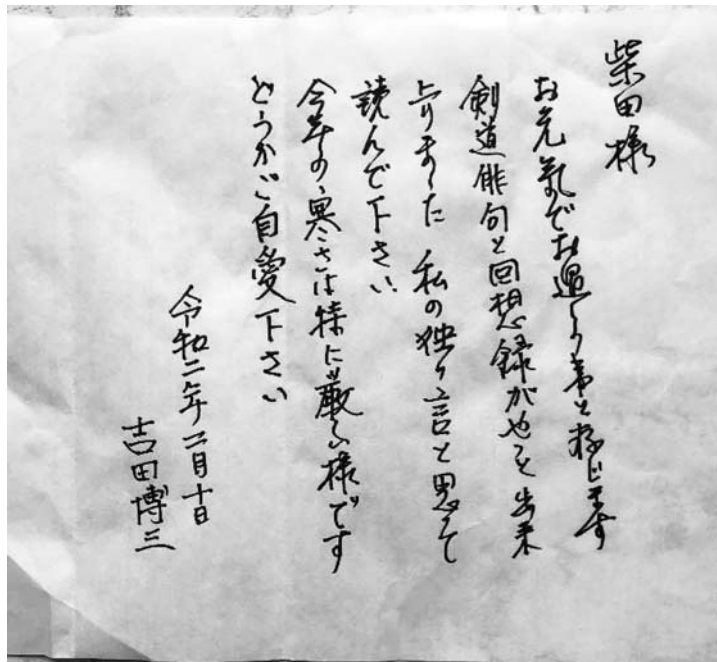 柴田様
お元氣でお過しの事と存じます
剣道俳句と回想録がやっと出来
上りました 私の独り言と思って
読んで下さい
今年の寒さは特に厳しい様です
どうかご自愛下さい
令和二年二月十日
吉田博三